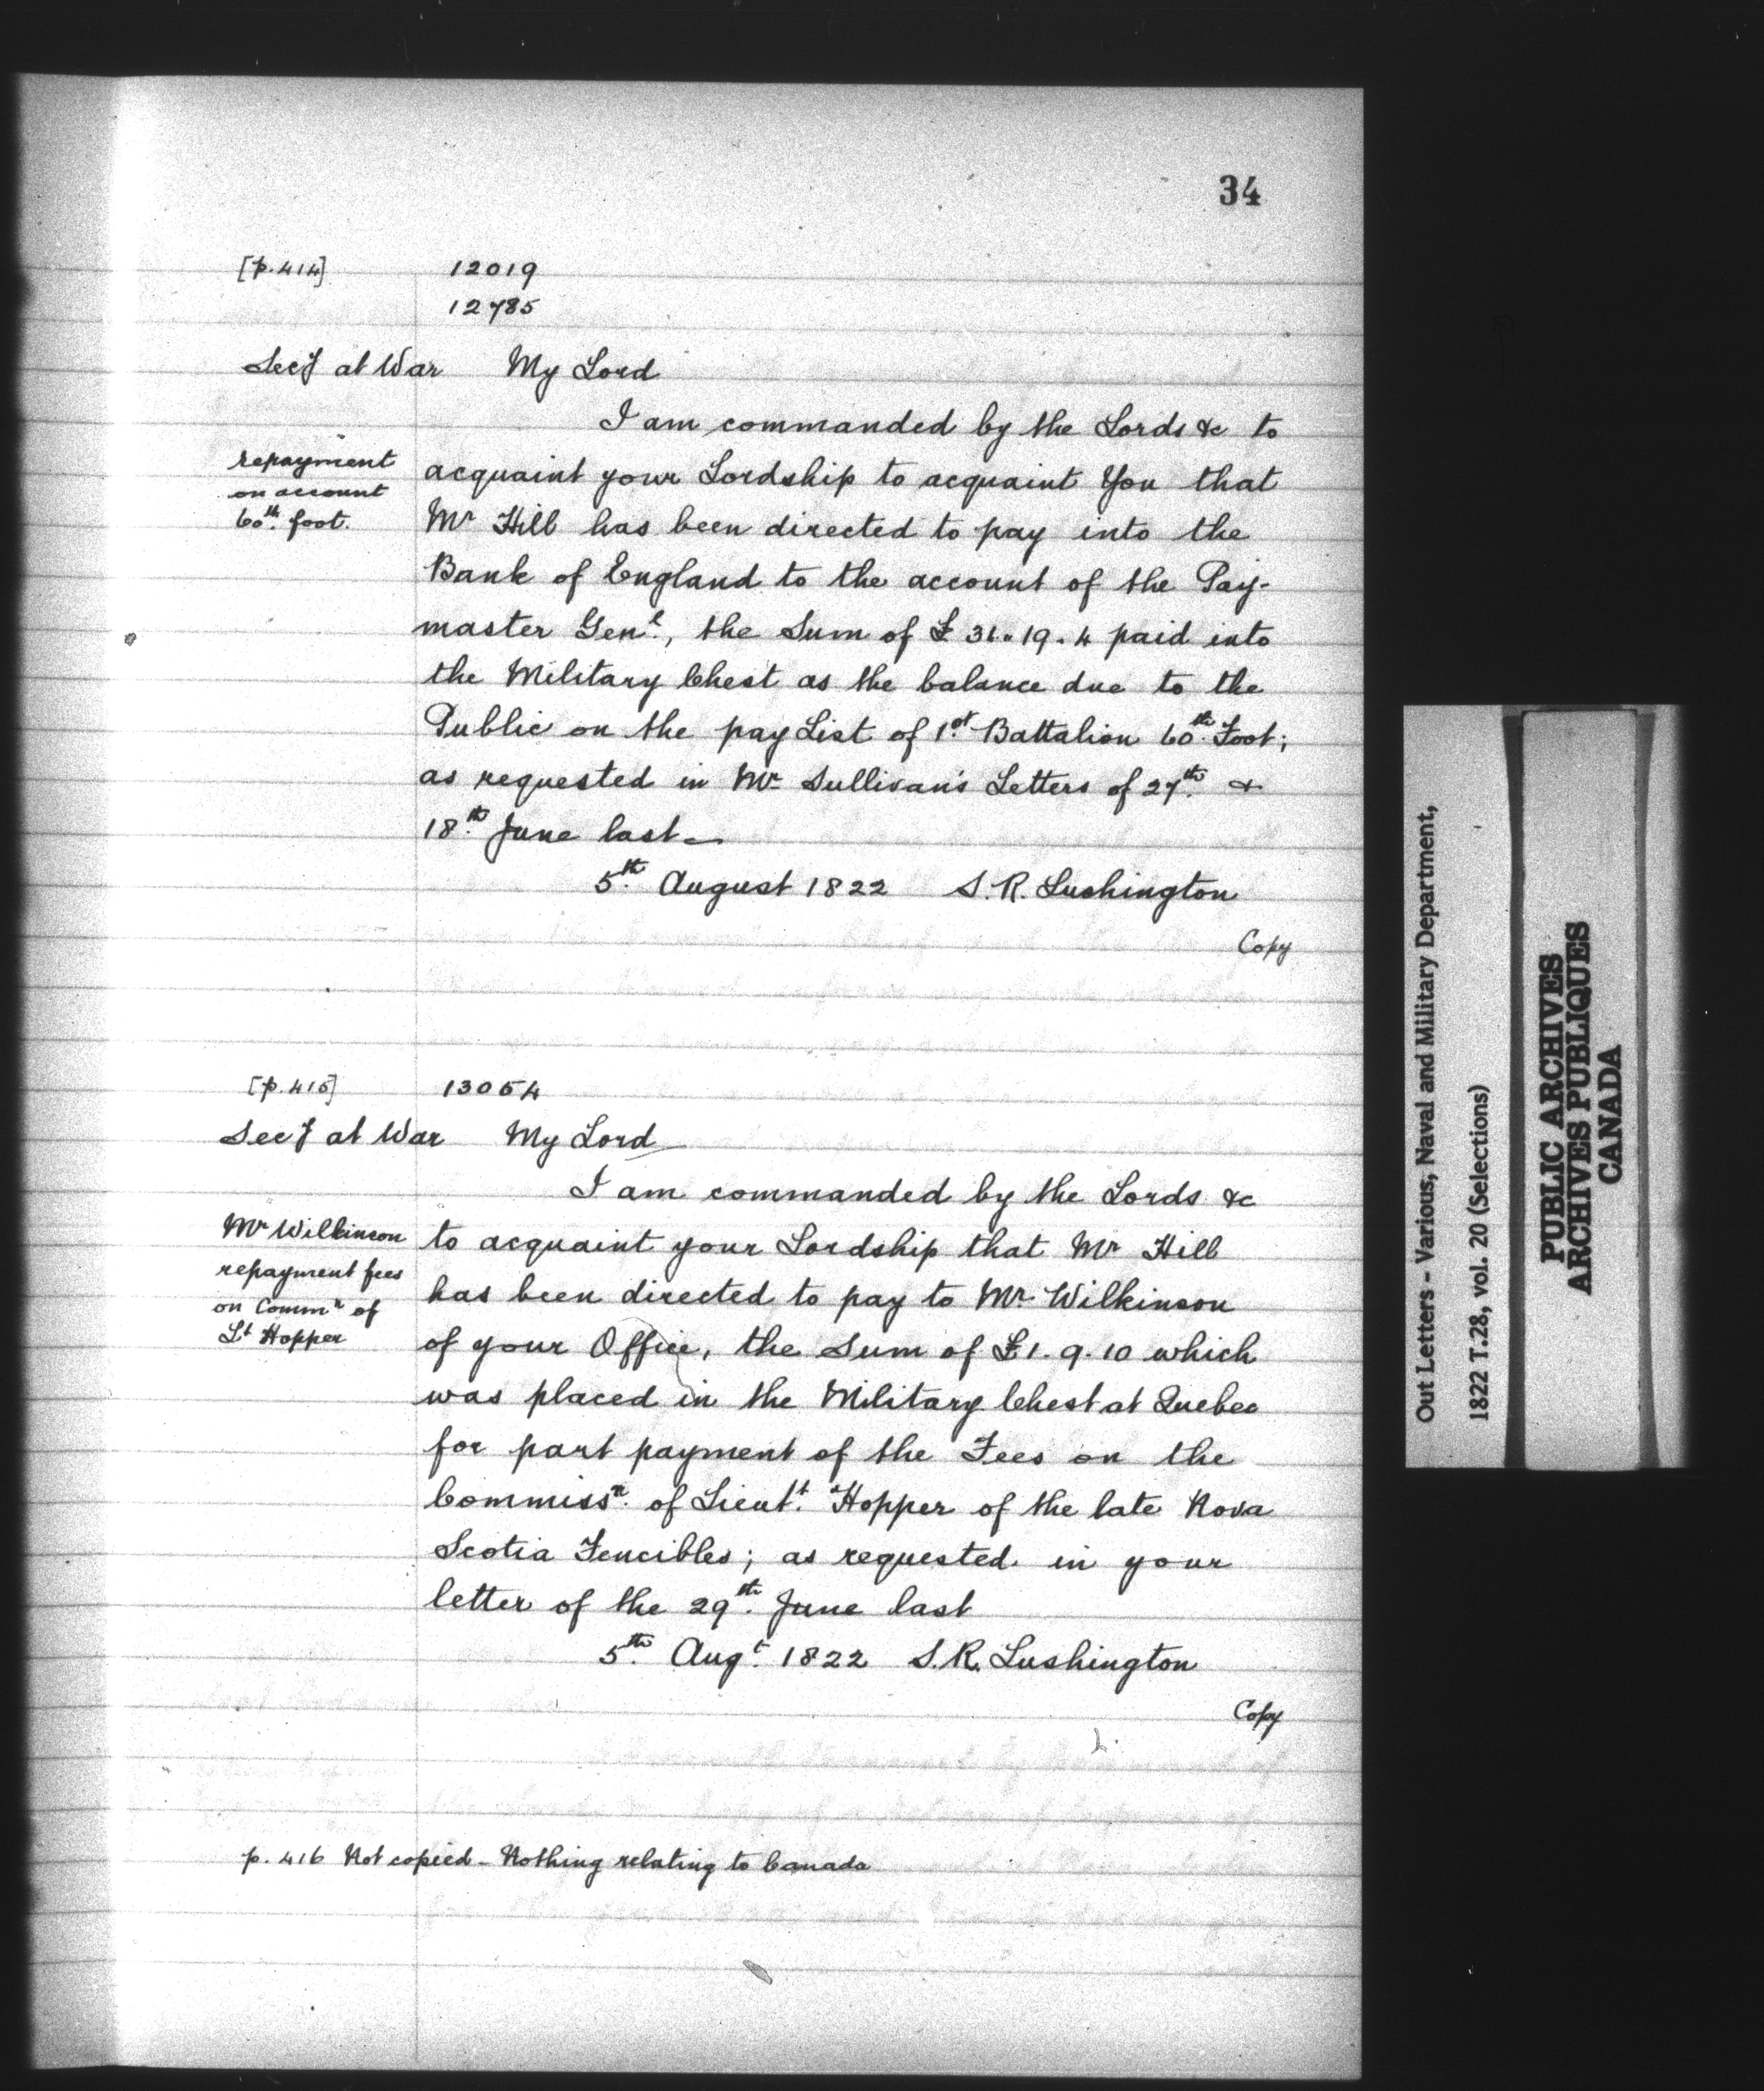 34
[p. 414] 12019
12785
Secy at War My Lord
I am commanded by the Lords &c to
repayment
on account
60th foot.
acquaint your Lordship to acquaint You that
Mr Hill has been directed to pay into the
Bank of England to the account of the Pay-
master Genl, the Sum of £ 31.19.4 paid into
the Military Chest as the balance due to the
Public on the pay List of 1st Battalion 60th Foot;
as requested in Mr Sullivan's Letters of 27th &
18th June last
5th August 1822 S. R. Lushington
Copy
[p. 415] 13054
Secy at War My Lord
I am commanded by the Lords &c
Mr Wilkinson
repayment fees
on Commn of
Lt Hopper
to acquaint your Lordship that Mr Hill
has been directed to pay to Mr Wilkinson
of your Office, the Sum of £1.9.10 which
was placed in the Military Chest at Quebec
for part payment of the Fees on the
Commissn of Lieut. Hopper of the late Nova
Scotia Fencibles; as requested in your
letter of the 29th June last
5th Augt 1822 S. R. Lushington
Copy
p. 416 Not copied - Nothing relating to Canada
Out Letters - Various, Naval and Military Department,
1822 T.28, vol. 20 (Selections)
PUBLIC ARCHIVES
ARCHIVES PUBLIQUES
CANADA